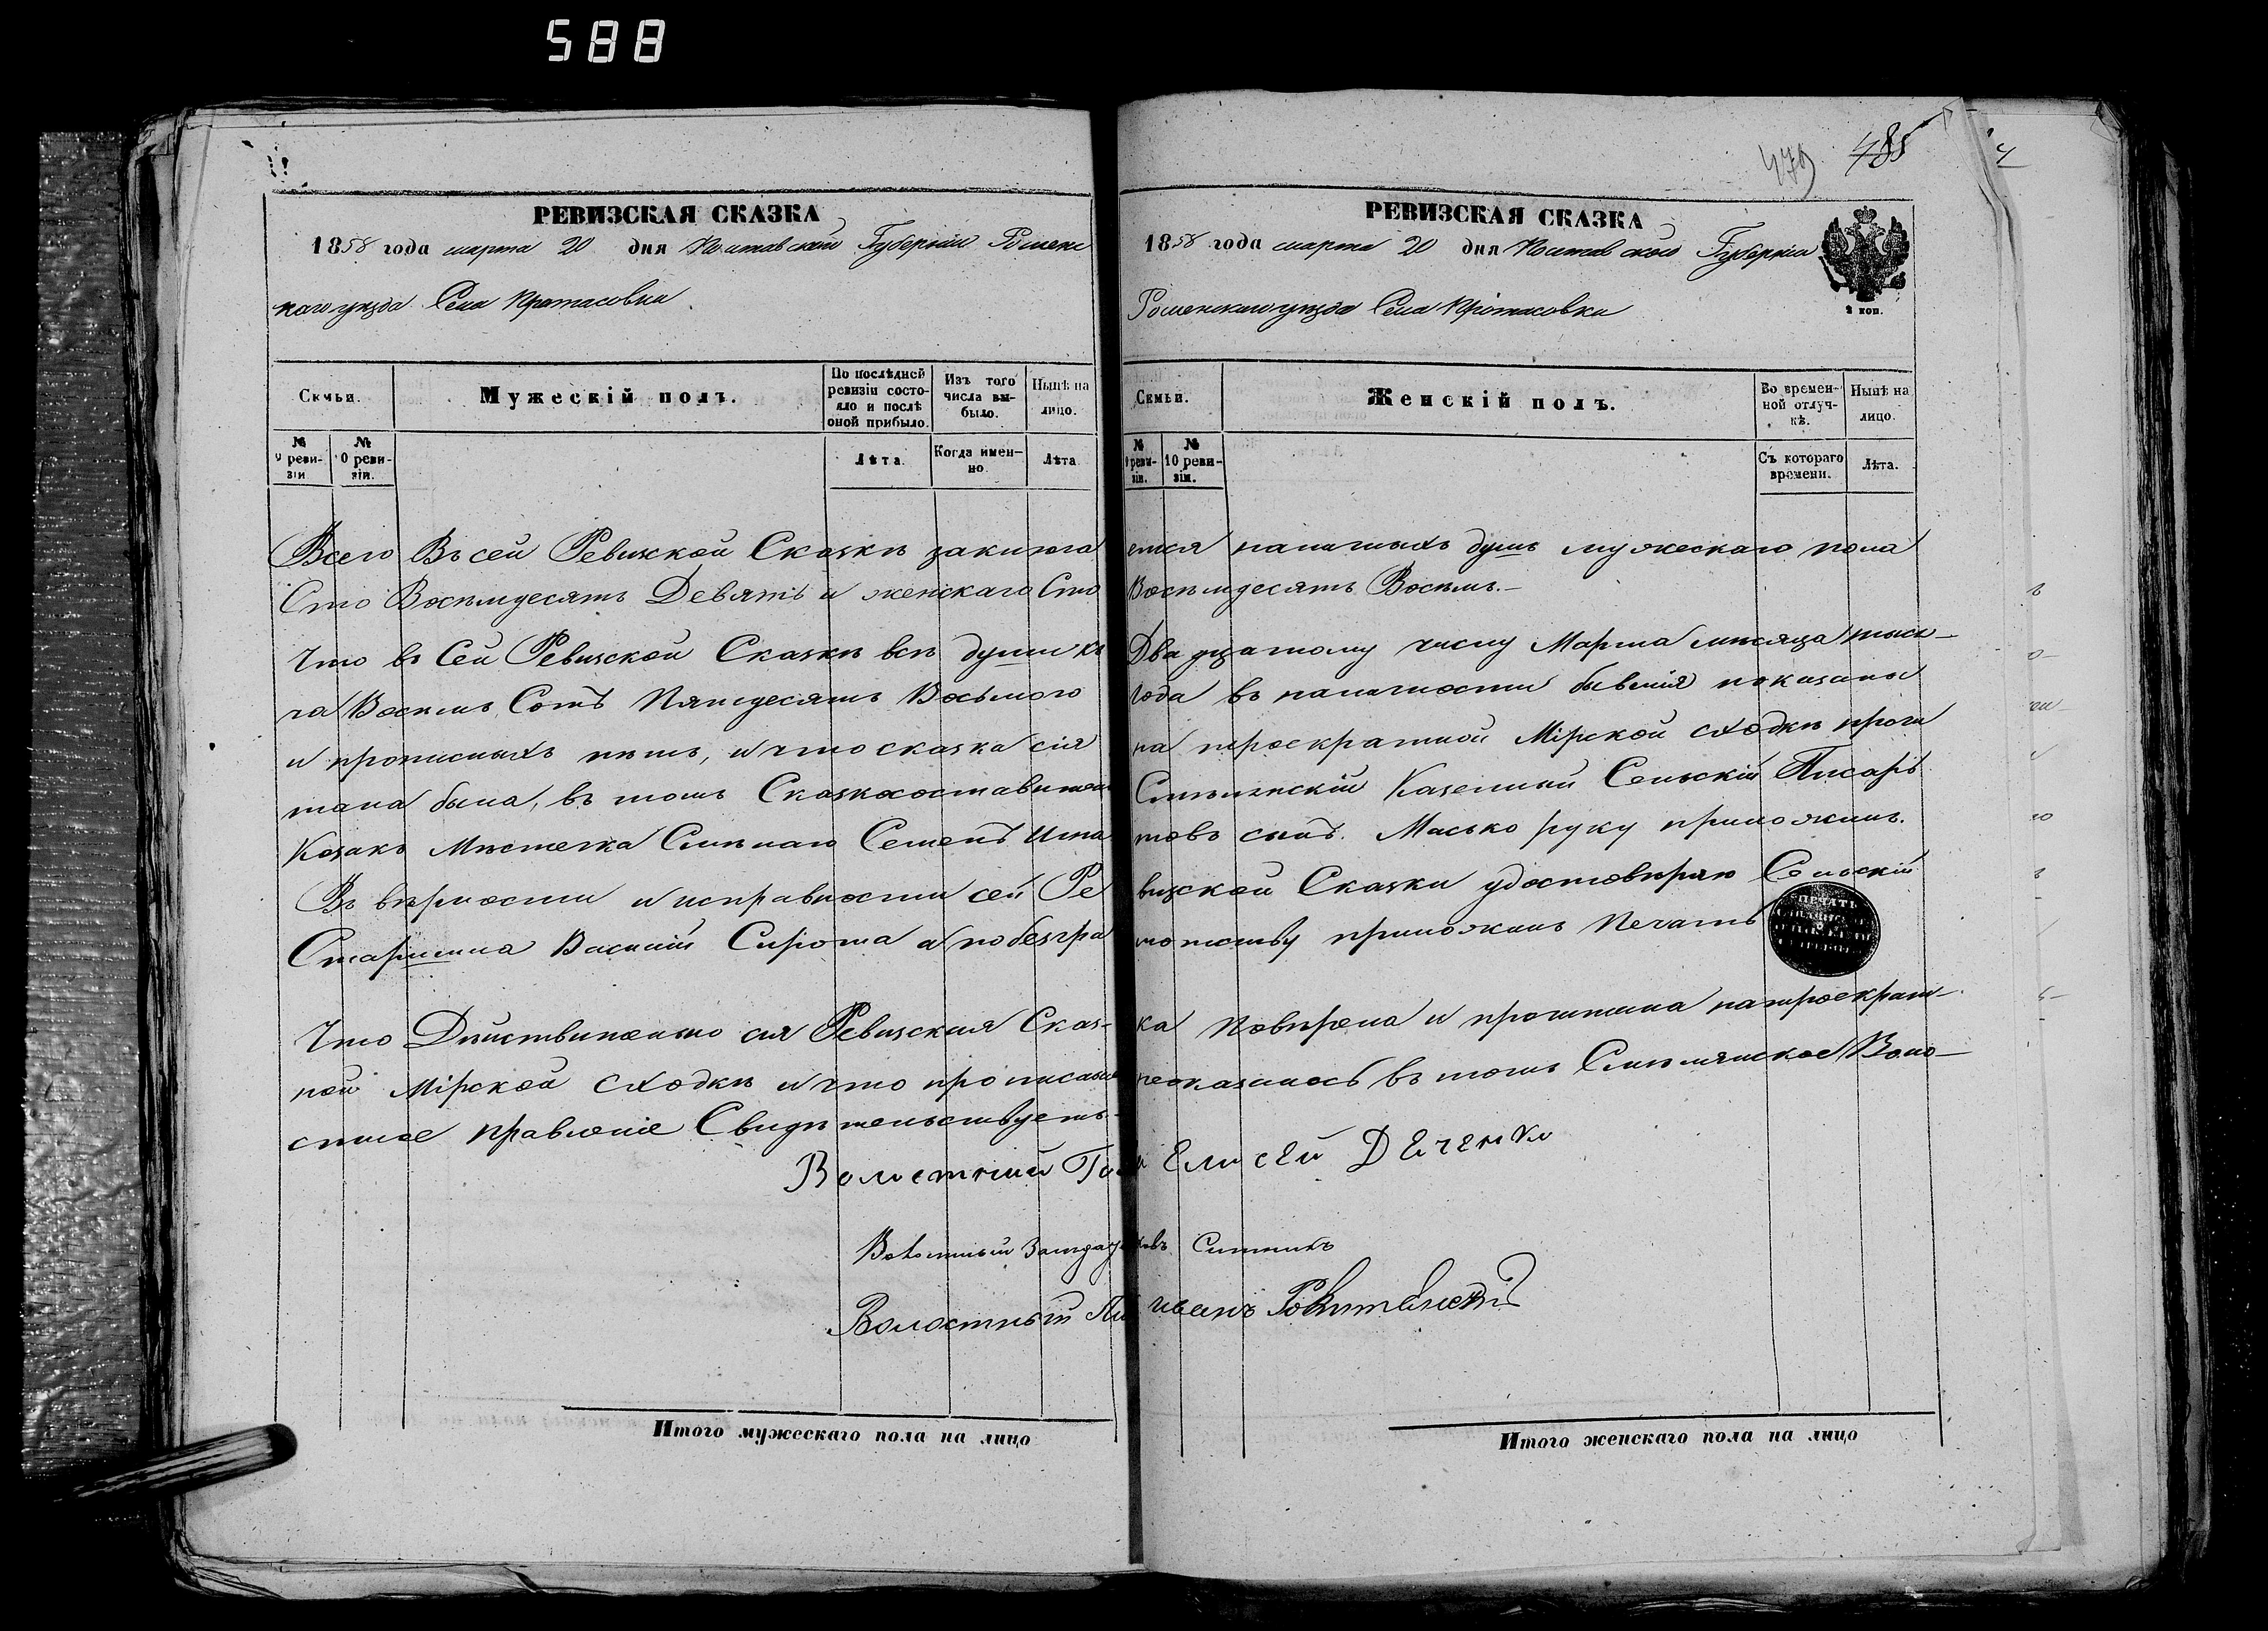 588
479 485
РЕВИЗСКАЯ СКАЗКА
1858 года марта 20 дня Полтавской Губернии Роменс
каго уезда Села Протасовки
Семьи.
Мужескій полъ.
По послѣдней ревизіи состояло и послѣ оной прибыло.
Изъ того числа выбыло.
Нынѣ на лицо.
№ 9 ревизіи
№ 10 ревизіи.
Лѣта.
Когда именно.
Лѣта
РЕВИЗСКАЯ СКАЗКА
1858 года марта 20 дня Полтавской Губерніи
Роменскаго уезда Села Протасовки
2 коп.
Семьи.
Женскій полъ.
Во временной отлучкѣ.
Нынѣ на лицо.
№ 9 ревизіи.
№ 10 ревизіи.
Съ котораго времени.
Лѣта.
Всего Въ сей Ревизской Сказкѣ заключа ется наличныхъ душъ мужескаго пола
Сто Восѣмдесятъ Девять и женскаго Сто Восѣмдесятъ Восѣмъ.—
Что въ Сей Ревизской Сказкѣ всѣ души къ Двадцатому числу Марта мѣсяца тыся-
ча Восѣмъ Сотъ Пятдесятъ Восьмого Года въ наличности бывшія показаны
и прописныхъ нѣтъ, и что сказка сія на троекратной Мірской сходкѣ прочи
тана была, въ томъ Сказкосоставитель Смѣлянскій Казенный Сельскій Писарь
Козакъ Мѣстечка Смѣлаго Семенъ Игна товъ сынъ. Масько руку приложилъ.
Въ вѣрности и исправности сей Ре визской Сказки удостовѣряю Сельскій
Старшина Василий Сирота а по безгра мотству приложилъ Печать
ПЕЧАТЬ
Что Дѣйствительно сия Ревизския Сказ- ка Повѣрена и прочитана натроекрат-
ной Мірской сходкѣ и что прописных неоказалось въ томъ Смѣлянское Воло-
стное правленіе Свидѣтельствуетъ.
Волостний Гол Елисей Деченко
Волостный Засѣда Ситникъ
Волостный Пи Иванъ
Итого мужескаго пола на лицо
Итого женскаго пола на лицо